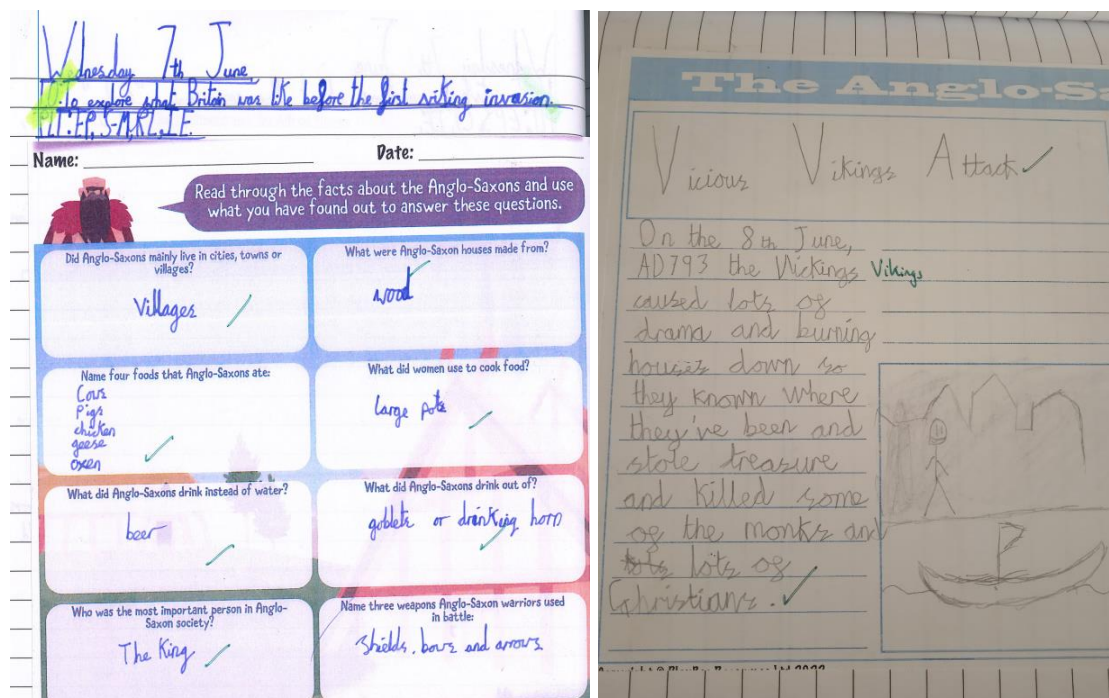 Wednesday 7th June
To explore what Britain was like before the first viking invasion.
PLT: EP, S-M, RL, IE.
Name:
Date:
Read through the facts about the Anglo-Saxons and use
what you have found out to answer these questions.
Did Anglo-Saxons mainly live in cities, towns or
villages?
Villages
What were Anglo-Saxon houses made from?
wood
Name four foods that Anglo-Saxons ate:
Cows
Pigs
chicken
geese
oxen
What did women use to cook food?
large pots
What did Anglo-Saxons drink instead of water?
beer
What did Anglo-Saxons drink out of?
goblets or drinking horn
Who was the most important person in Anglo-
Saxon society?
The King
Name three weapons Anglo-Saxon warriors used
in battle:
shields, bows and arrows
The Anglo-Sa
Vicious Vikings Attack
On the 8th June,
AD793 the Vickings Vikings
caused lots of
drama and burning
houses down so
they known where
they've been and
stole treasure
and killed some
of the monks and
lots of
Christians.